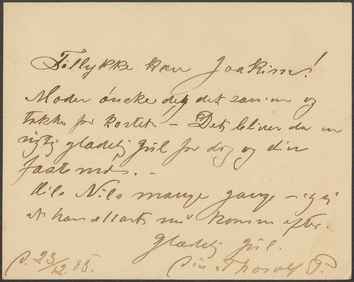 Tillykke kære Joakim!
Moder ønske dig det samme og
takke for kortet - Det bliver da en
rigtig glædelig Jul for dig og din
Hils Nils mange gange - sig
at han må komme efter.
glædelig Jul.
d. 23/12 85. Din Thorolf P.